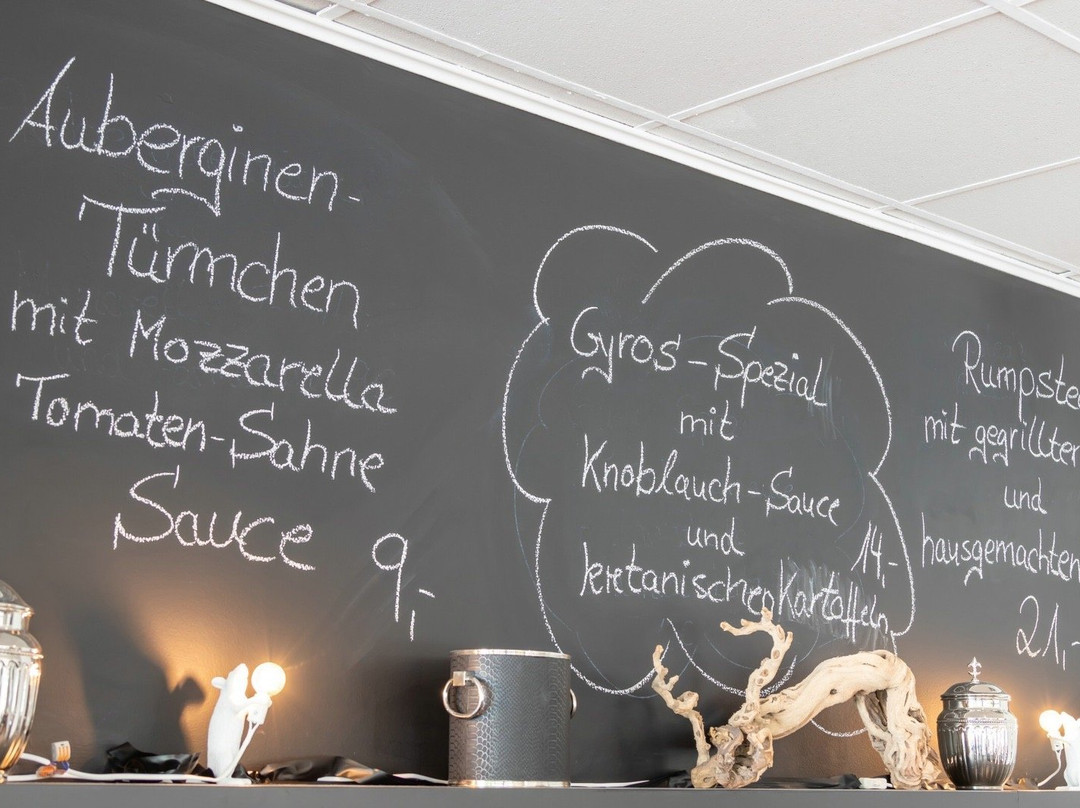 Auberginen-
Türmchen
mit Mozzarella
Tomaten-Sahne
Sauce
9,-
Gyros-Spezial
mit
Knoblauch-Sauce
und
kretanischen Kartoffeln
14,-
Rumpste
mit gegrillten
und
hausgemachten
21,-